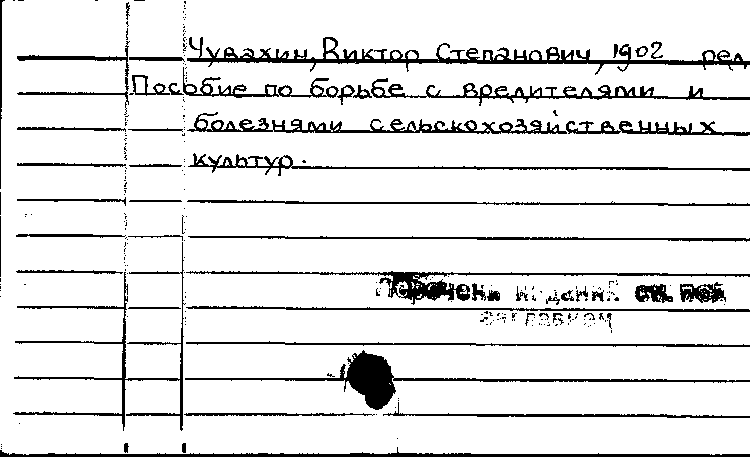 Чувахин, Виктор Степанович, 1902 ред
Пособие по борьбе с вредителями и
болезнями сельскохозяйственных
культур.
Перечень изданий см. под
заглавием